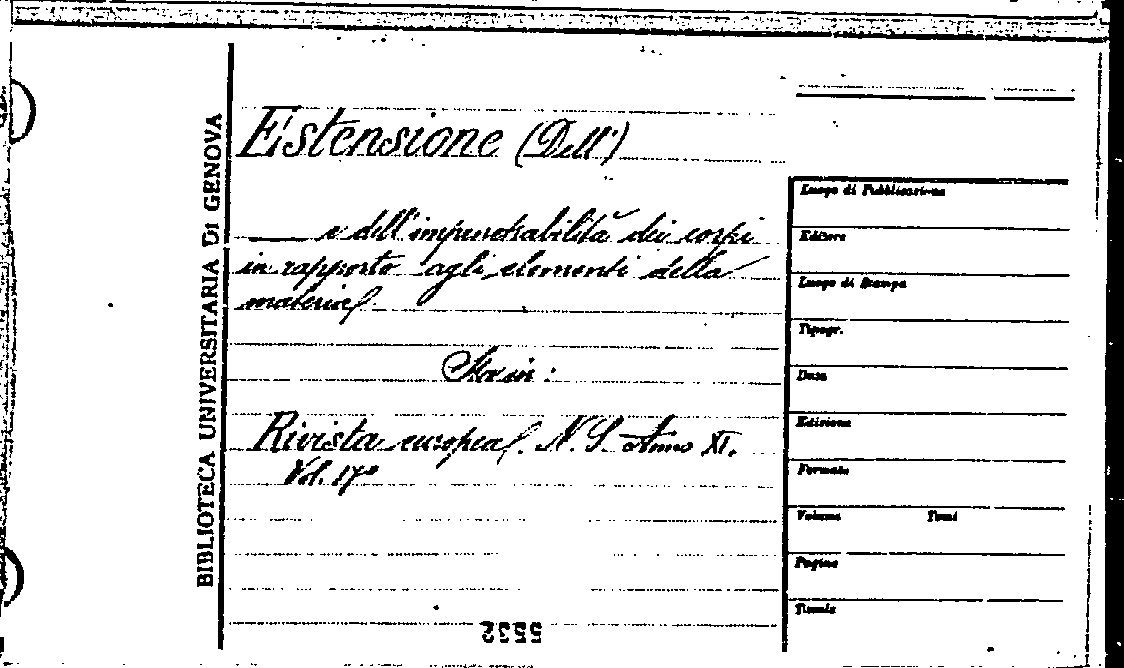 BIBLIOTECA UNIVERSITARIA DI GENOVA
Estensione (Dell')
e dell'impenetrabilità dei corpi
in rapporto agli elementi della
materia
Sta in:
Rivista europea. N. S. Anno XI.
Vol. 17°
5532
Luogo di Pubblicazione
Editore
Luogo di Stampa
Tipogr.
Data
Edizione
Formato
Volume Tomi
Pagine